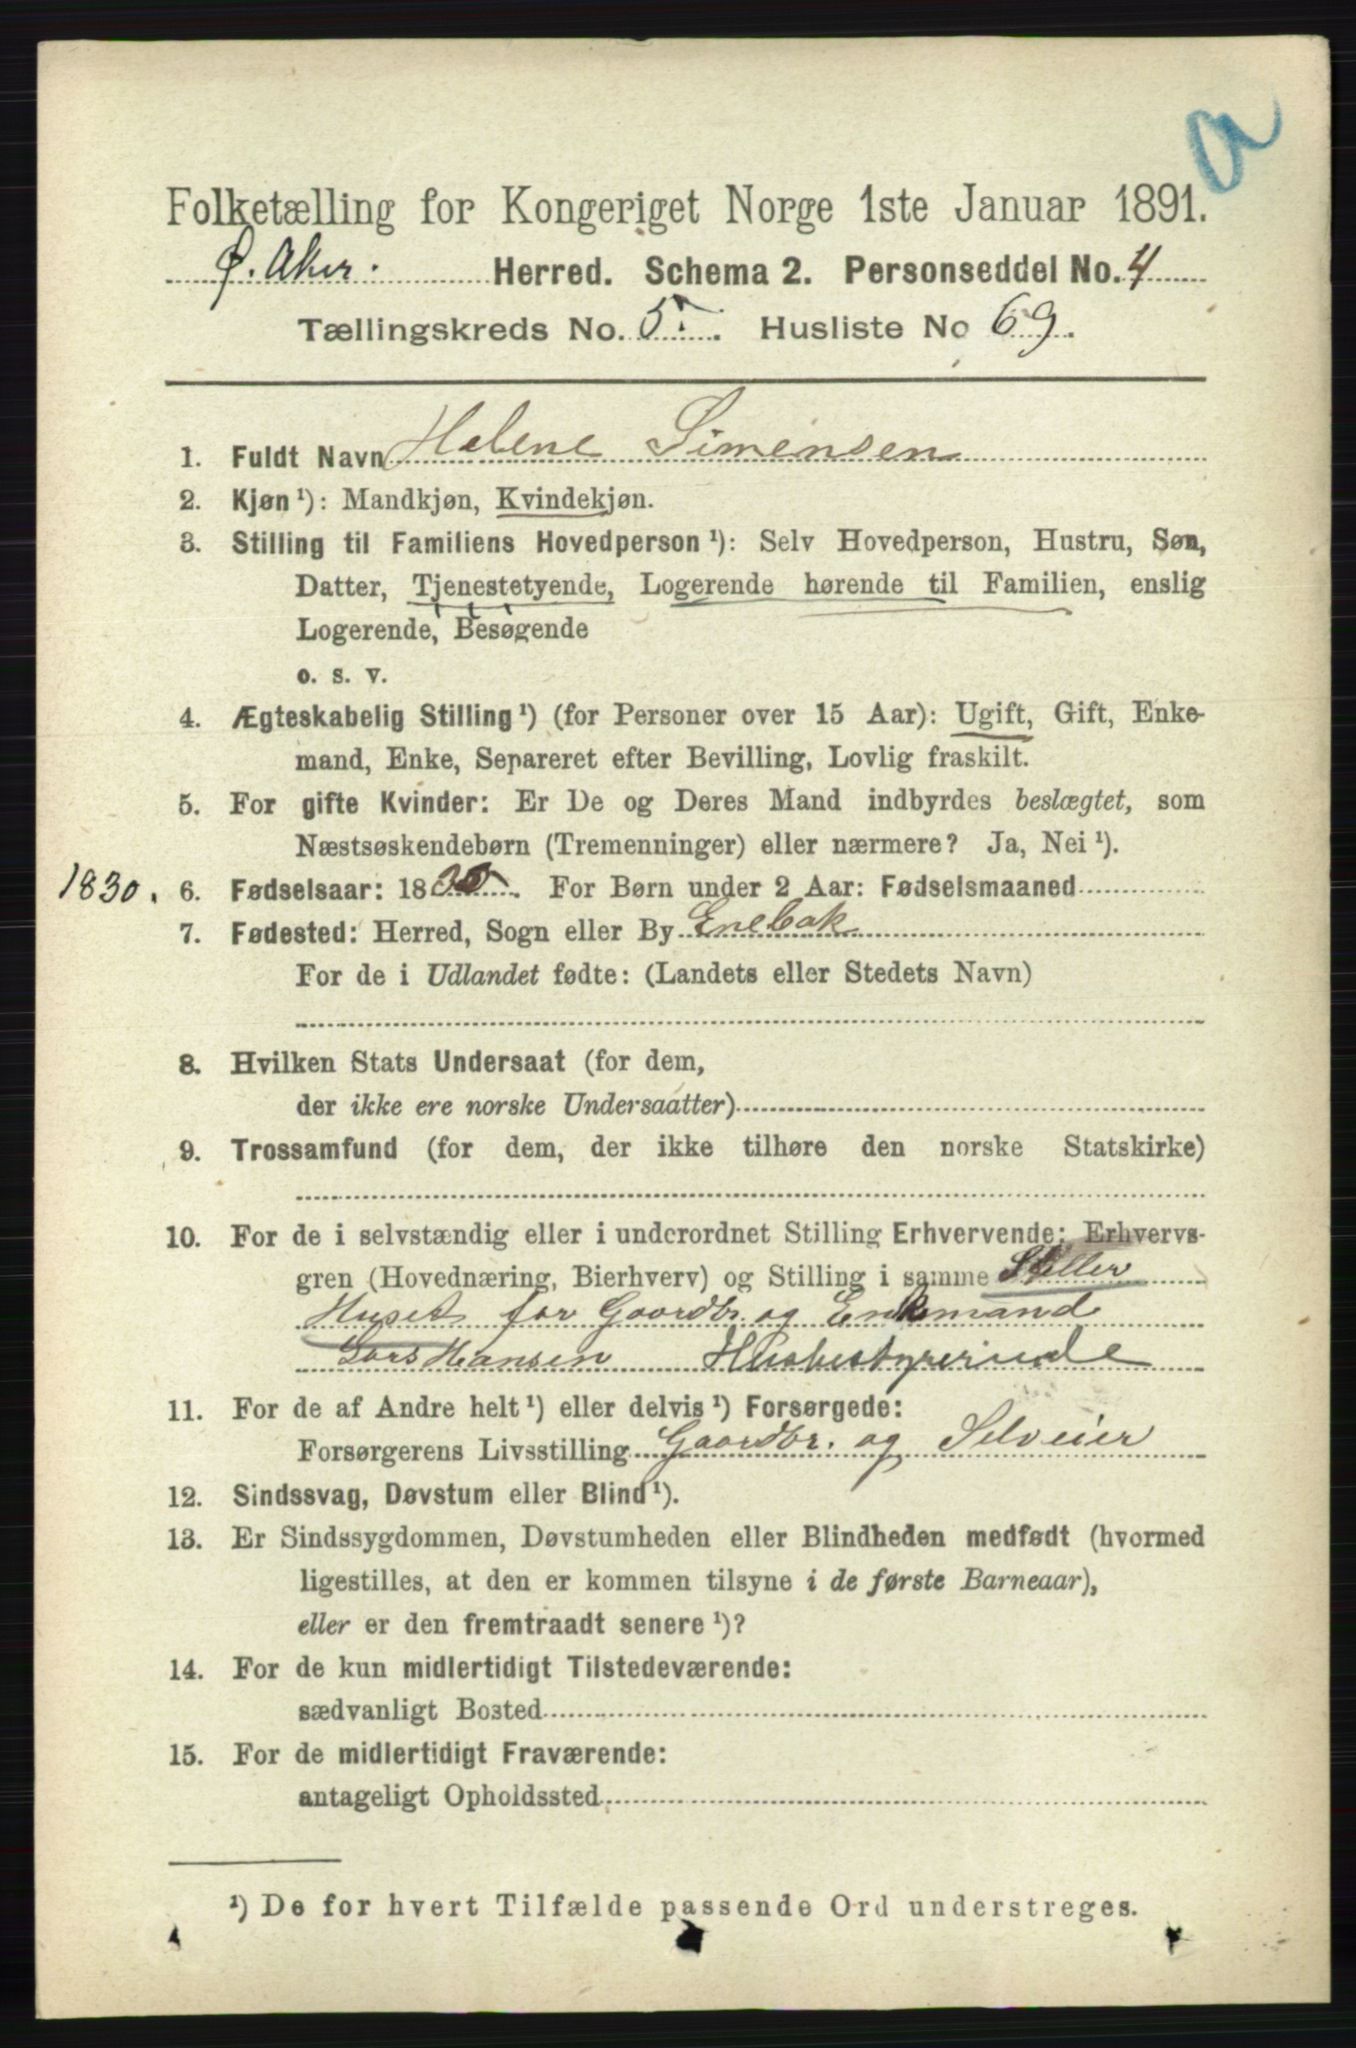 a
Folketælling for Kongeriget Norge 1ste Januar 1891.
Ø. Aker. Herred. Schema 2. Personseddel No. 4
Tællingskreds No. 5. Husliste No 69.
1. Fuldt Navn Helene Simensen
2. Kjøn¹): Mandkjøn, Kvindekjøn.
3. Stilling til Familiens Hovedperson¹): Selv Hovedperson, Hustru, Søn,
Datter, Tjenestetyende, Logerende hørende til Familien, enslig
Logerende, Besøgende
o. s. v.
4. Ægteskabelig Stilling¹) (for Personer over 15 Aar): Ugift, Gift, Enke-
mand, Enke, Separeret efter Bevilling, Lovlig fraskilt.
5. For gifte Kvinder: Er De og Deres Mand indbyrdes beslægtet, som
Næstsøskendebørn (Tremenninger) eller nærmere? Ja, Nei¹).
1830. 6. Fødselsaar: 18 . For Børn under 2 Aar: Fødselsmaaned
7. Fødested: Herred, Sogn eller By Enebak
For de i Udlandet fødte: (Landets eller Stedets Navn)
8. Hvilken Stats Undersaat (for dem,
der ikke ere norske Undersaatter)
9. Trossamfund (for dem, der ikke tilhøre den norske Statskirke)
10. For de i selvstændig eller i underordnet Stilling Erhvervende: Erhvervs-
gren (Hovednæring, Bierhverv) og Stilling i samme Steller
Huset for Gaardbr. og Enkemand
Lars Hansen Husbestyrerinde
11. For de af Andre helt¹) eller delvis¹) Forsørgede:
Forsørgerens Livsstilling Gaardbr. og Selveier
12. Sindssvag, Døvstum eller Blind¹).
13. Er Sindssygdommen, Døvstumheden eller Blindheden medfødt (hvormed
ligestilles, at den er kommen tilsyne i de første Barneaar),
eller er den fremtraadt senere¹)?
14. For de kun midlertidigt Tilstedeværende:
sædvanligt Bosted
15. For de midlertidigt Fraværende:
antageligt Opholdssted
¹) De for hvert Tilfælde passende Ord understreges.